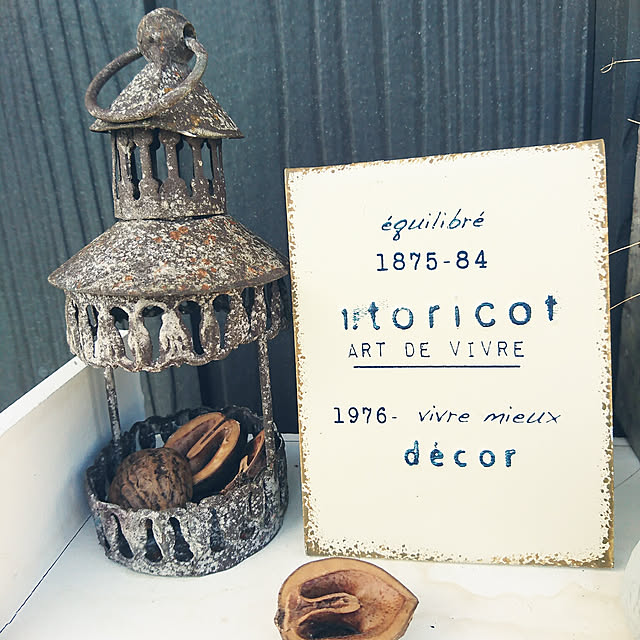 équilibré
1875-84
ART DE VIVRE
1976- vivre mieux
décor